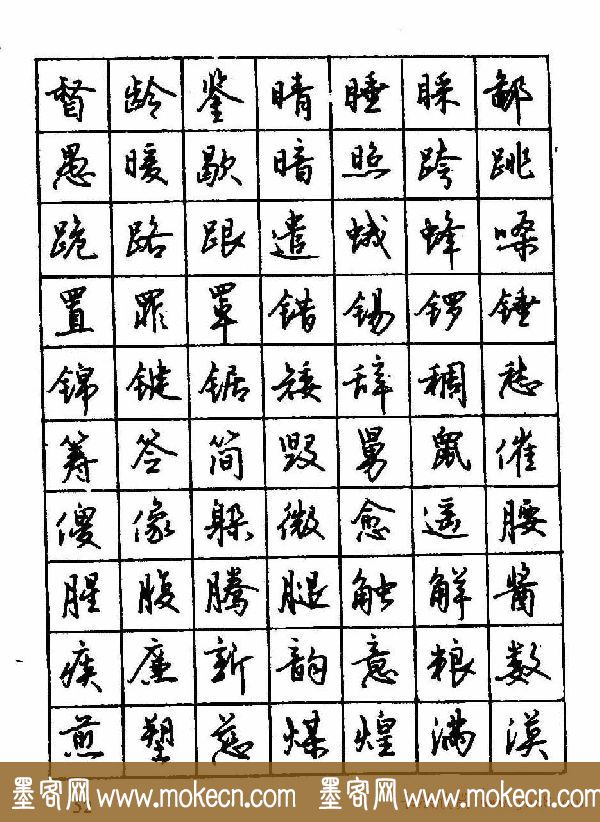 督龄鉴睛睡睬鄙
愚暖歇暗照跨跳
跪路跟遣蛾蜂嗓
置罪罩错锡锣锤
锦键锯矮辞稠愁
筹签简毁舅鼠催
傻像躲微愈遥腰
腥腹腾腿触解酱
痰廉新韵意粮数
煎塑慈煤煌满漠
52
墨客网 www.mokecn.com 墨客网 www.mokecn.com